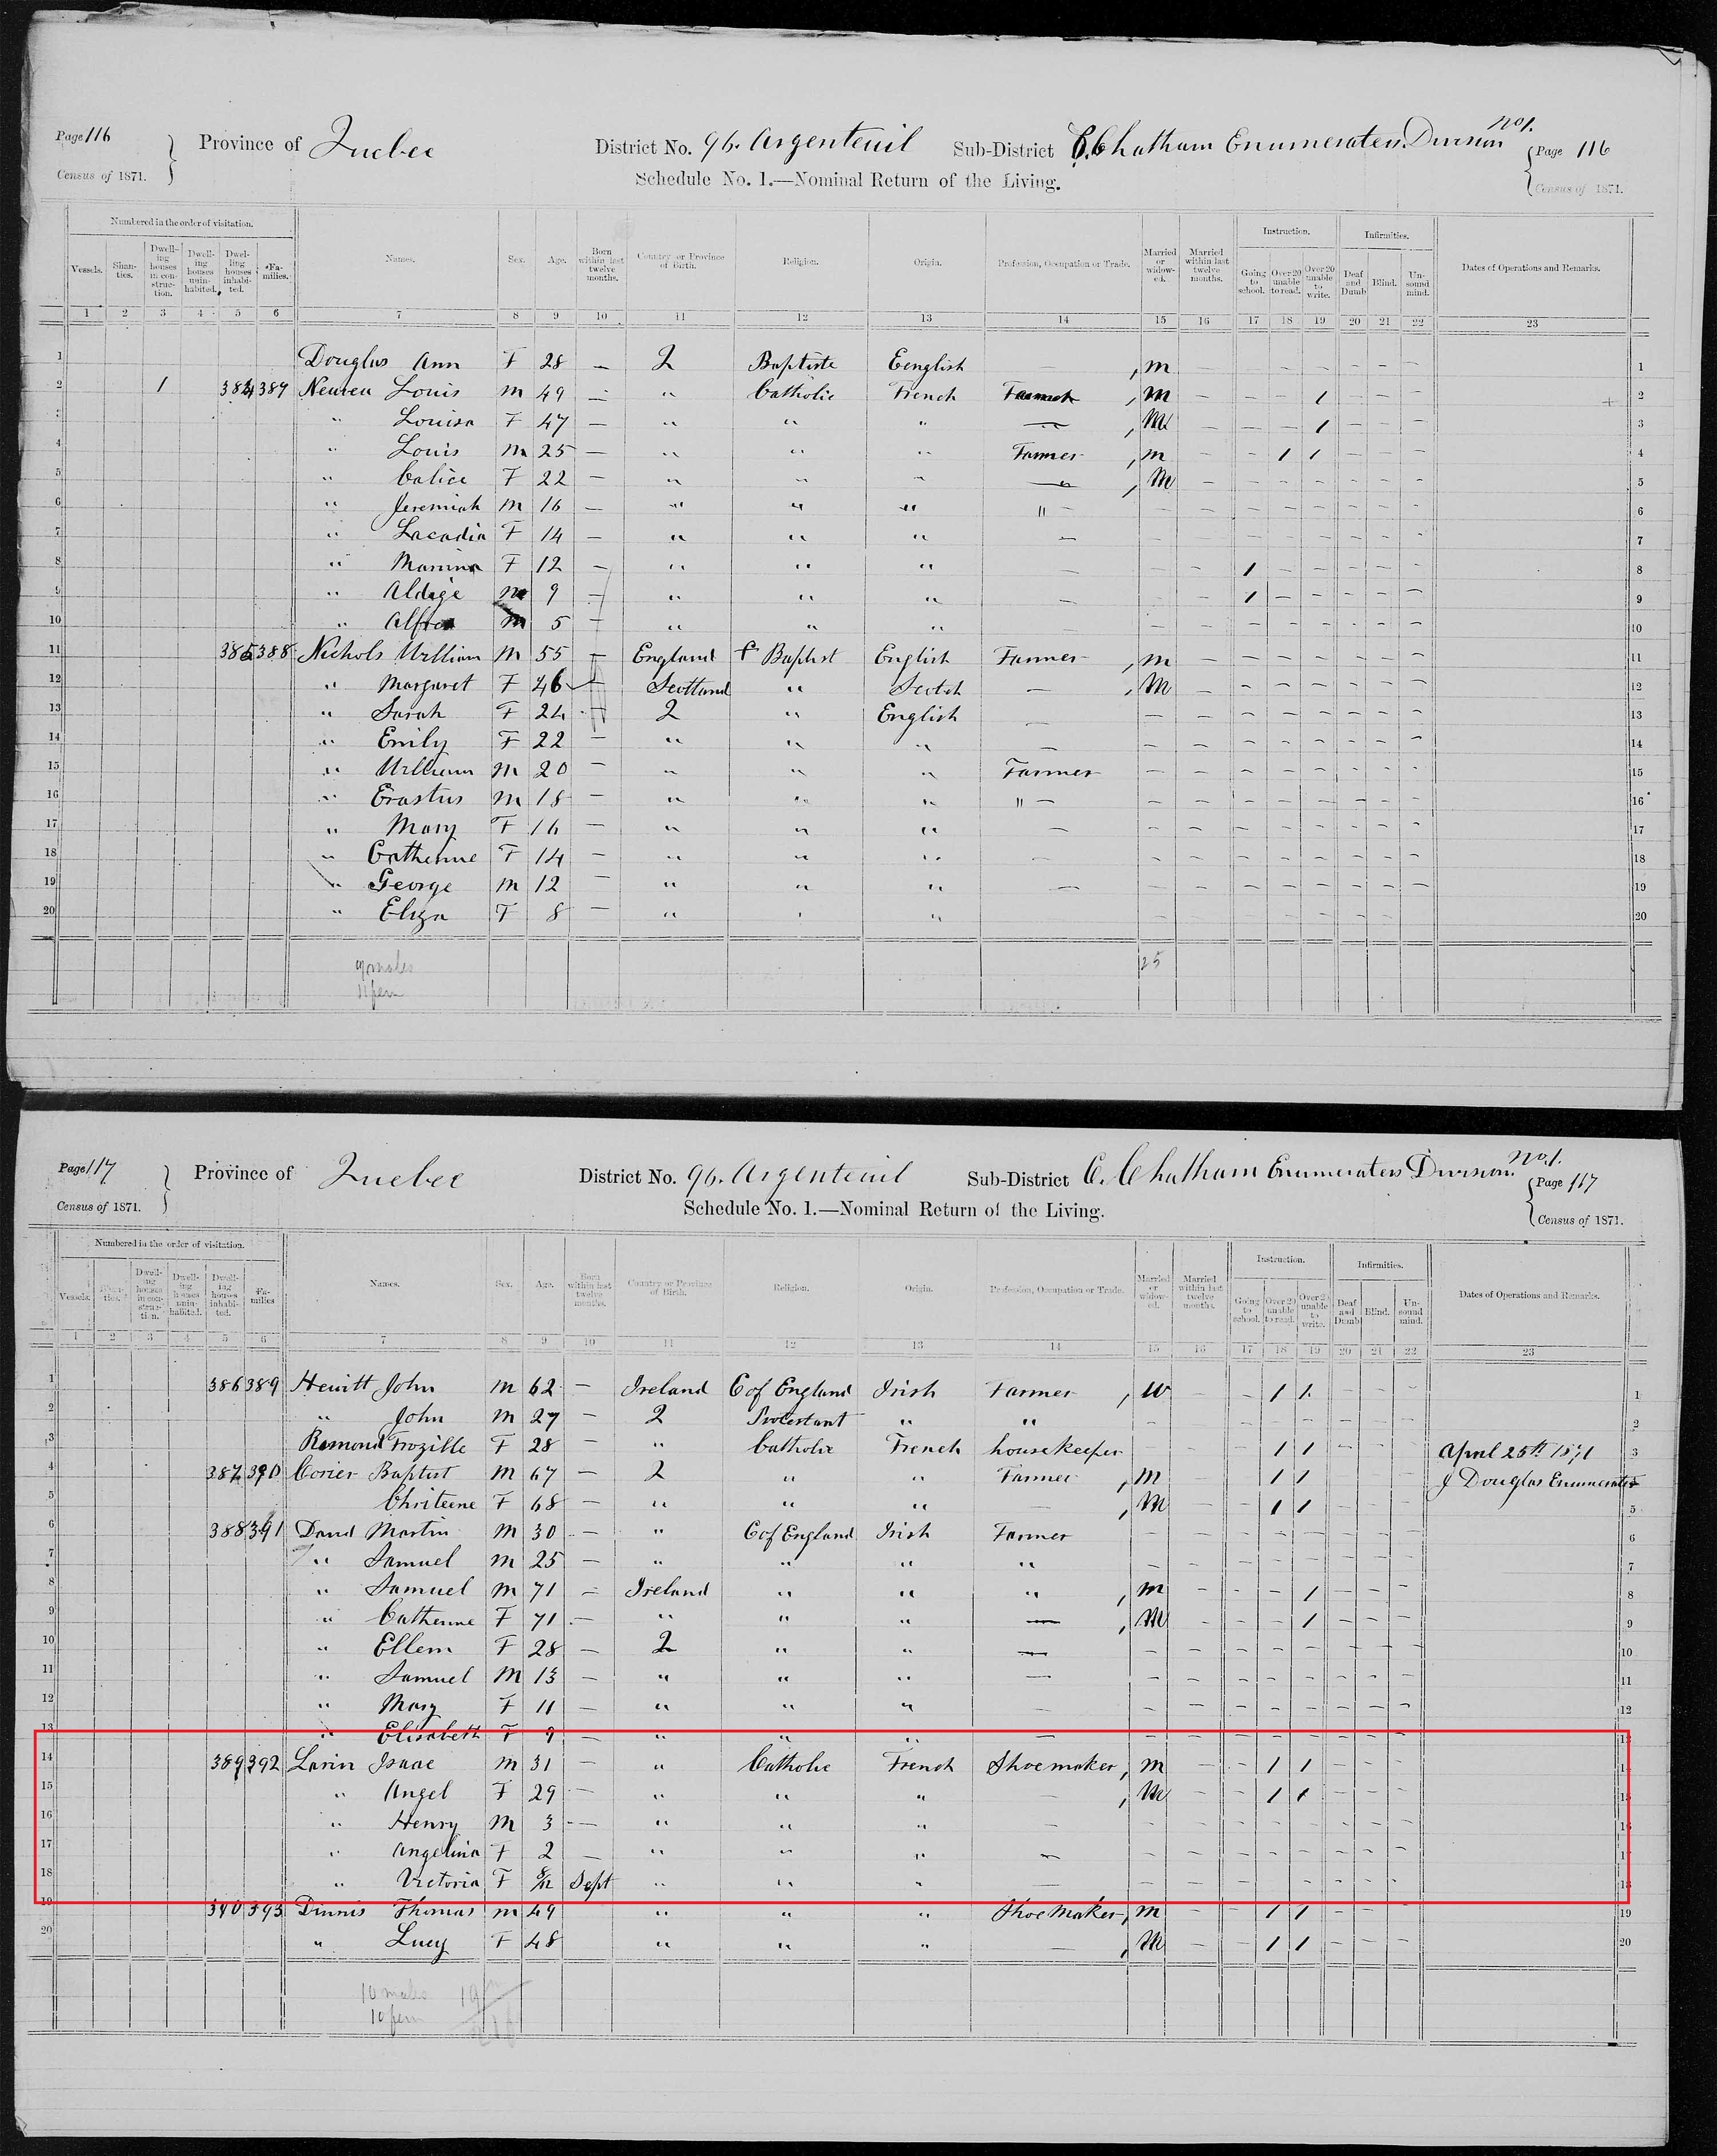 Page 116
Province of Quebec
District No. 96. Argenteuil
Sub-District C. Chatham Enumeraters Division No 1.
Page 116
Census of 1871.
Schedule No. 1.—Nominal Return of the Living.
Census of 1871.
Numbered in the order of visitation.
Vessels. Shanties. Dwelling houses in construction. Dwelling houses uninhabited. Dwelling houses inhabited. Families. Names. Sex. Age. Born within last twelve months. Country or Province of Birth. Religion. Origin. Profession, Occupation or Trade. Married or widowed. Married within last twelve months. Instruction. Going to school. Over 20 unable to read. Over 20 unable to write. Infirmities. Deaf and Dumb Blind. Unsound mind. Dates of Operations and Remarks.
1 2 3 4 5 6 7 8 9 10 11 12 13 14 15 16 17 18 19 20 21 22 23
1 Douglas Ann F 28 — 2 Baptiste Eenglish — m — — — — — — 1
2 1 384 387 Neuveu Louis m 49 — " Catholic French Farmer m — — — 1 — — — 2
3 " Louisa F 47 — " " " — M — — — 1 — — — 3
4 " Louis m 25 — " " " Farmer m — — 1 1 — — — 4
5 " Calice F 22 — " " " — M — — — — — — — 5
6 " Jeremiah m 16 — " " " " — — — — — — — — 6
7 " Lacadia F 14 — " " " — — — — — — — — 7
8 " Manina F 12 — " " " — — — 1 — — — — — 8
9 " Aldige m 9 — " " " — — — 1 — — — — — 9
10 " m 5 — " " " — — — — — — — — 10
11 385 388 Nichols William M 55 — England f Baptist English Farmer m — — — — — — — 11
12 " Margaret F 46 — Scotland " Scotch — M — — — — — — — 12
13 " Sarah F 24 — 2 " English — — — — — — — — — 13
14 " Emily F 22 — " " " — — — — — — — — — 14
15 " William m 20 — " " " Farmer — — — — — — — — 15
16 " Erastus m 18 — " " " " — — — — — — — — — 16
17 " Mary F 16 — " " " — — — — — — — — — 17
18 " Catherine F 14 — " " " — — — — — — — — — 18
19 " George m 12 — " " " — — — — — — — — — 19
20 " Eliza F 8 — " " " — — — — — — 20
9 males
11 fem
Page 117
Province of Quebec
District No. 96. Argenteuil
Sub-District C. Chatham Enumeraters Division No. 1.
Page 117
Census of 1871.
Schedule No. 1.—Nominal Return of the Living.
Census of 1871.
Numbered in the order of visitation.
Vessels. Shanties. Dwelling houses in construction. Dwelling houses uninhabited. Dwelling houses inhabited. Families Names. Sex. Age. Born within last twelve months. Country or Province of Birth. Religion. Origin. Profession, Occupation or Trade. Married or widowed. Married within last twelve months. Instruction. Going to school. Over 20 unable to read. Over 20 unable to write. Infirmities. Deaf and Dumb Blind. Unsound mind. Dates of Operations and Remarks.
1 2 3 4 5 6 7 8 9 10 11 12 13 14 15 16 17 18 19 20 21 22 23
1 386 389 Hewitt John m 62 — Ireland C of England Irish Farmer w — — 1 1 — — — 1
2 " John m 27 — 2 Protestant " " — — — — — — — 2
3 Remond Frozille F 28 — " Catholic French housekeeper — — 1 1 — — April 25th 1871 3
4 387 390 Cosier Baptist m 67 — 2 " " Farmer m — 1 1 — — J Douglas Enumerator
5 Chriteene F 68 — " " " — M — 1 1 — — — 5
6 388 391 David Martin m 30 — " C of England Irish Farmer — — — — — — — 6
7 " Samuel m 25 — " " " " — — — — — — — 7
8 " Samuel m 71 — Ireland " " " m — — — 1 — — — 8
9 " Catherine F 71 — " " " — M — — — 1 — — — 9
10 " Ellem F 28 — 2 " " — — — — — — — — — 10
11 " Samuel M 13 — " " " — — — — — — — — — 11
12 " Mary F 11 — " " " — — — — — — — — — 12
13 " Elisabeth F 9 — " " " — — — — — — — — — 13
14 389 392 Larin Isaac m 31 — " Catholic French Shoemaker m — — 1 1 — — — 14
15 " Angel F 29 — " " " — M — — 1 1 — — — 15
16 " Henry M 3 — " " " — — — — — — — — — 16
17 " Angelina F 2 — " " " — — — — — — — — — 17
18 " Victoria F 8/12 Sept " " " — — — — — — — — — 18
19 390 393 Dinnis Thomas m 49 " " " Shoe Maker m — — 1 1 — — — 19
20 " Lucy F 48 " " " — M — — 1 1 — — — 20
10 males
10 fem